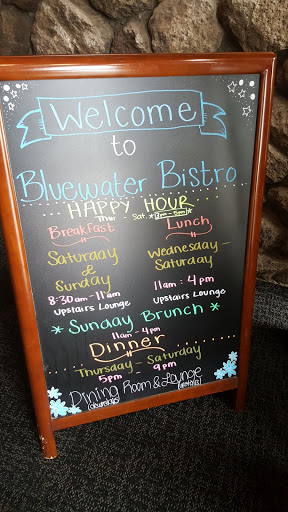 Welcome
to
Bluewater Bistro
HAPPY HOUR
Thur Sat. *2pm-5pm*
Breakfast Lunch
Saturday Wednesday -
& Saturday
Sunday
8:30am-11am 11am - 4pm
upstairs Lounge upstairs Lounge
* Sunday Brunch *
11am - 4pm
Dinner
Thursday - Saturday
5pm 9pm
Dining Room & Lounge
(downstairs) (upstairs)